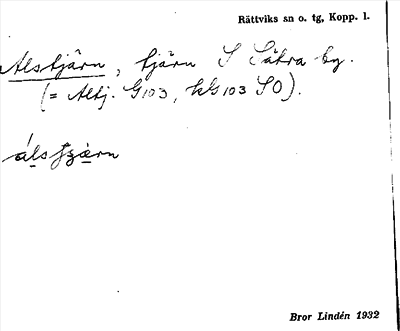 Rättviks sn o. tg, Kopp. l.
Alstjärn, tjärn S Sätra by.
(= Altj. G103, kG103 SO).
Bror Lindén 1932